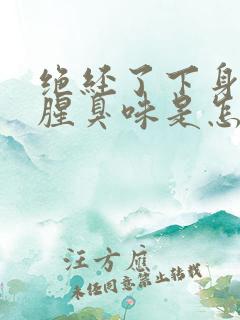 绝经了下身
腥臭味是怎
汪方应
未经同意禁止转载